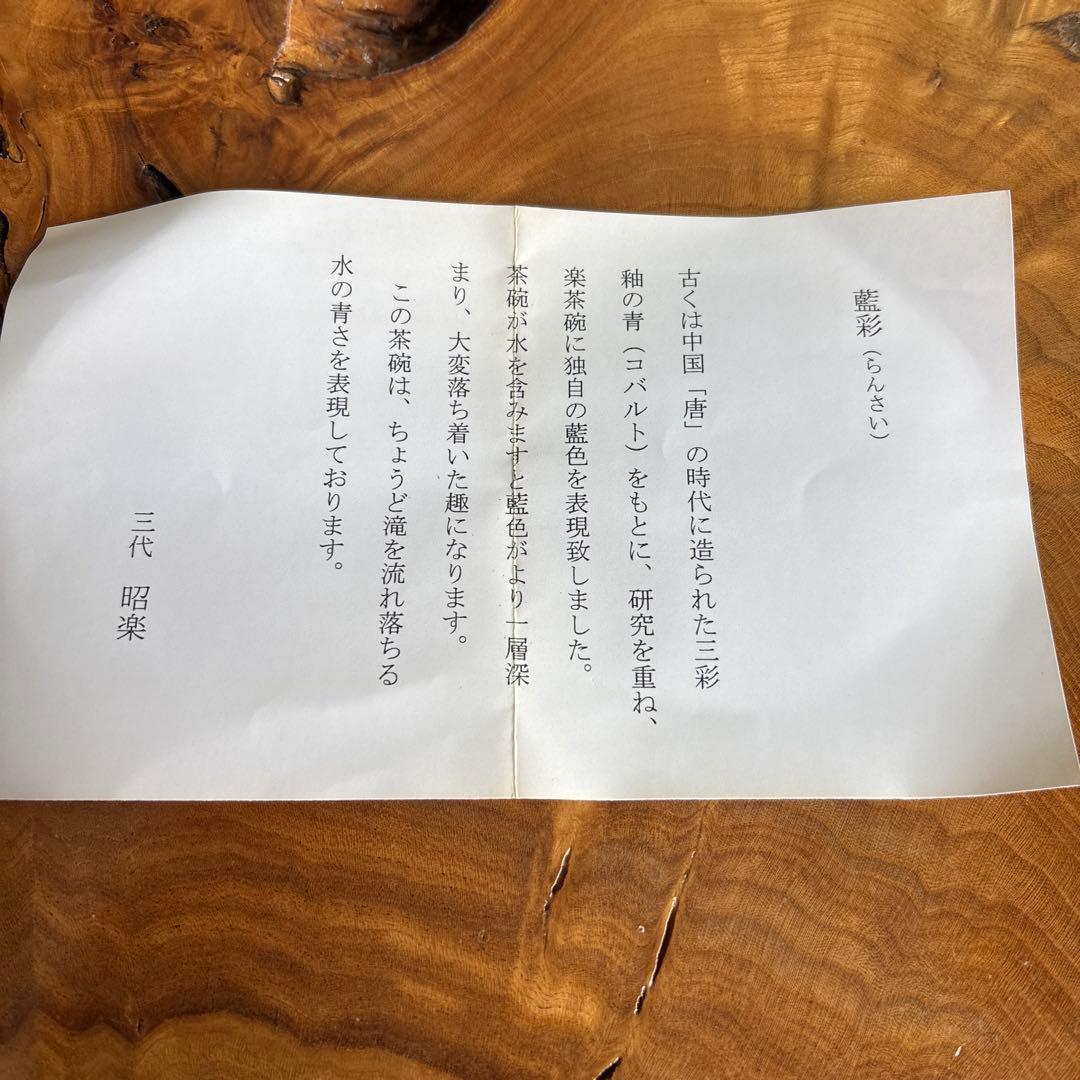 藍彩（らんさい）
古くは中国「唐」の時代に造られた三彩
釉の青（コバルト）をもとに、研究を重ね、
楽茶碗に独自の藍色を表現致しました。
茶碗が水を含みますと藍色がより一層深
まり、大変落ち着いた趣になります。
この茶碗は、ちょうど滝を流れ落ちる
水の青さを表現しております。
三代　昭楽